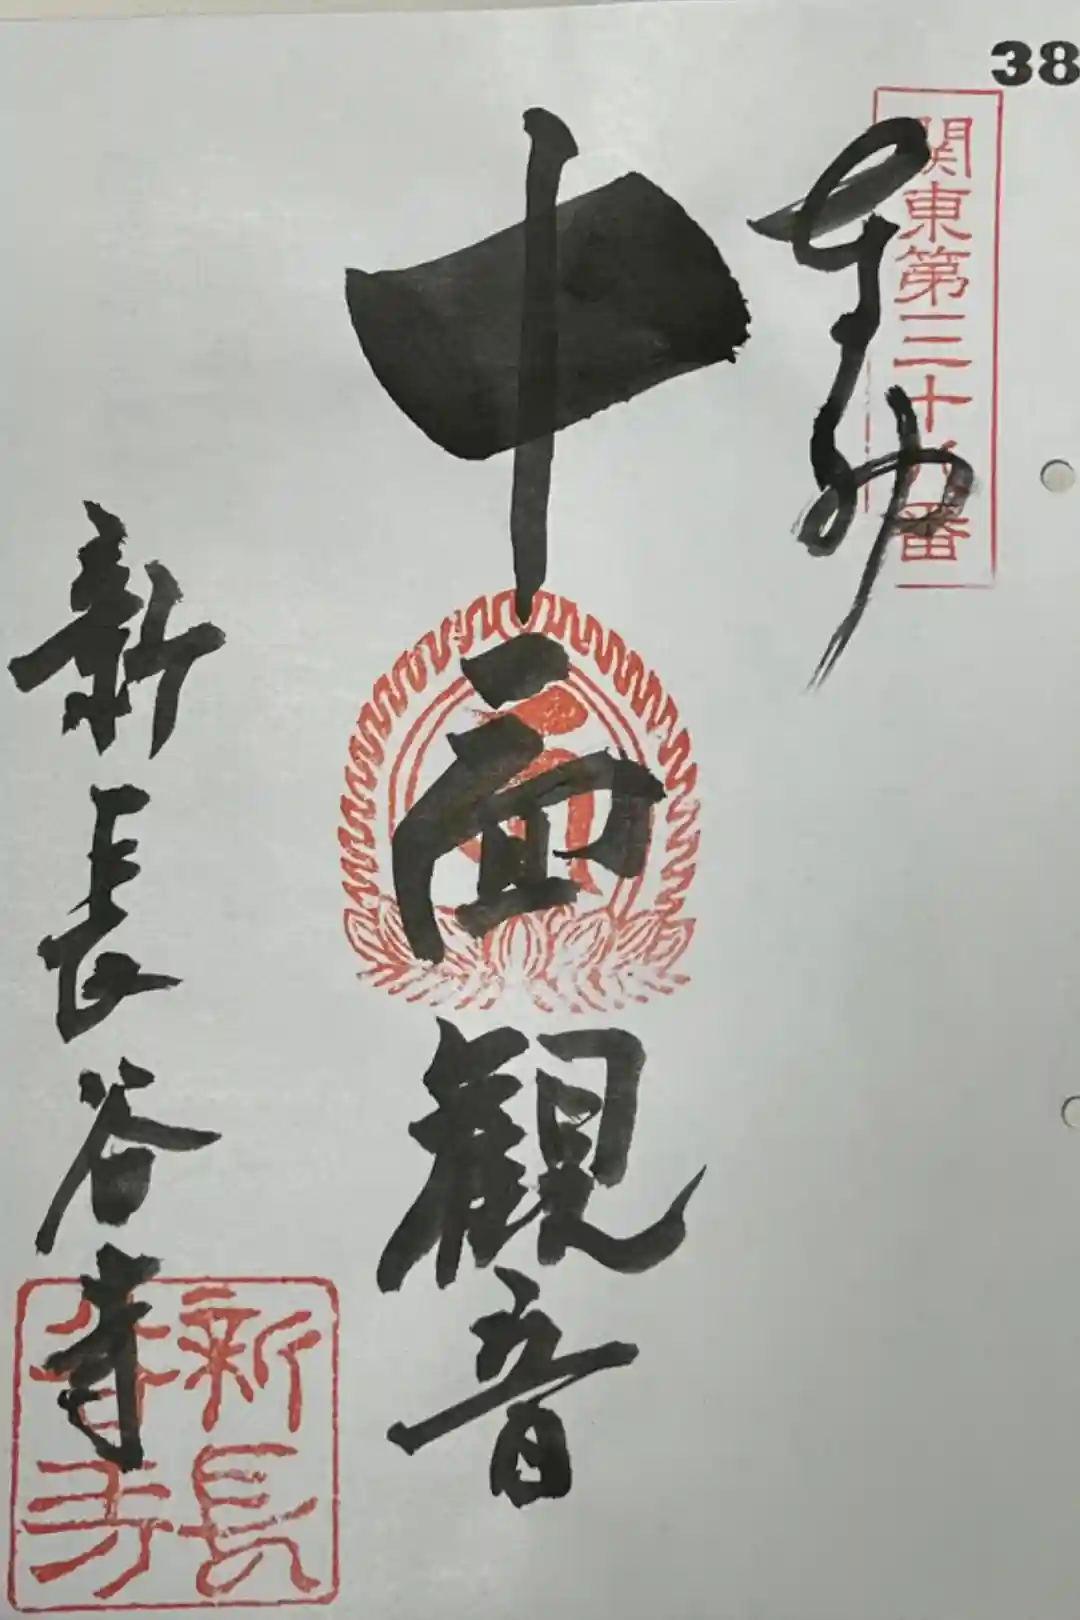 38
関東第三十八番
奉拝
十一面観音
新長谷寺
新長
谷寺